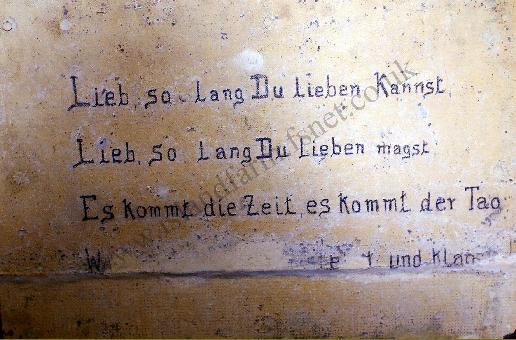 Lieb, so Lang Du Lieben Kannst,
Lieb, so Lang Du Lieben magst
Es kommt die Zeit, es kommt der Tag
W und Klag